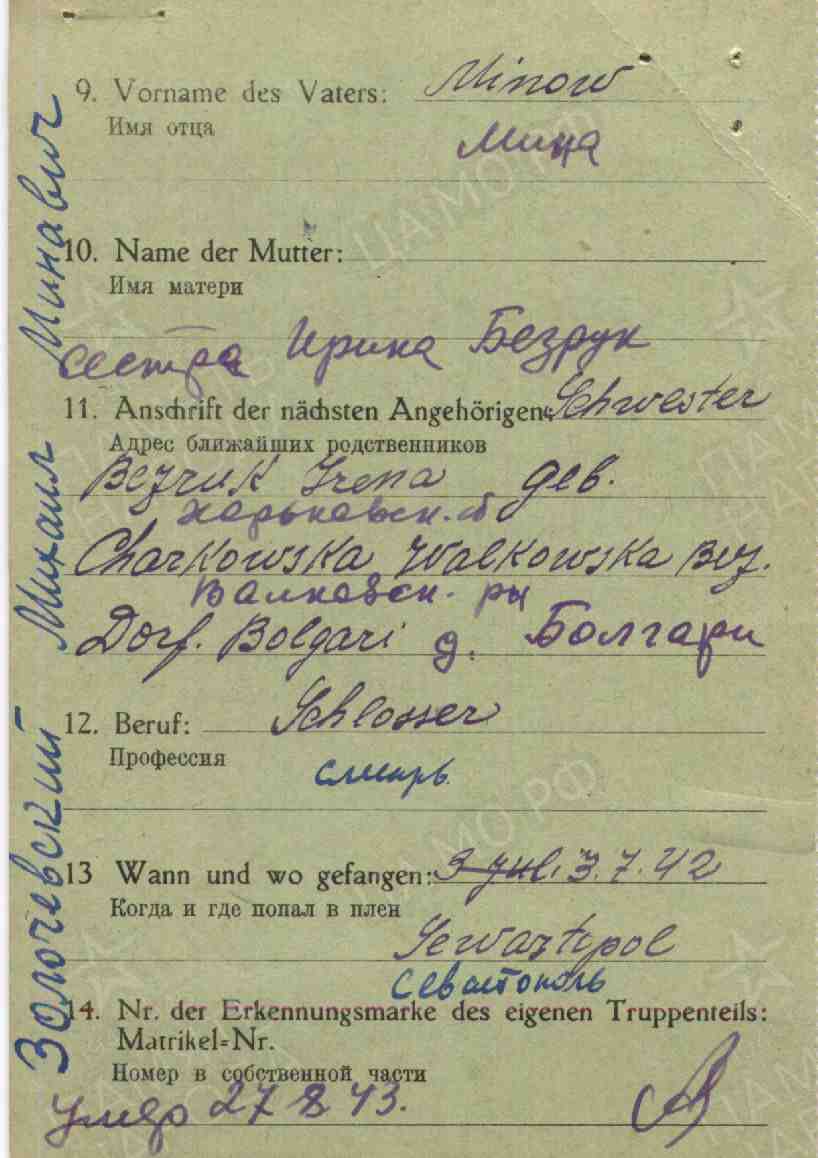 Золочевский Михаил Минавич
9. Vorname des Vaters: Minow
Имя отца
Мина
10. Name der Mutter:
Имя матери
сестра Ирина Безрук
11. Anschrift der nächsten Angehörigen: Schwester
Адрес ближайших родственников
Bezruk Irena дев.
Харьковск. о
Charkowska Walkowska Bez.
Валковск. рн
Dorf. Bolgari д. Болгари
12. Beruf: Schlosser
Профессия
слесарь
13 Wann und wo gefangen: 3 Jul. 3.7.42
Когда и где попал в плен
Sewastopol
Севастополь
14. Nr. der Erkennungsmarke des eigenen Truppenteils:
Matrikel=Nr.
Номер в собственной части
27 8 43.
ЦАМО.РФ